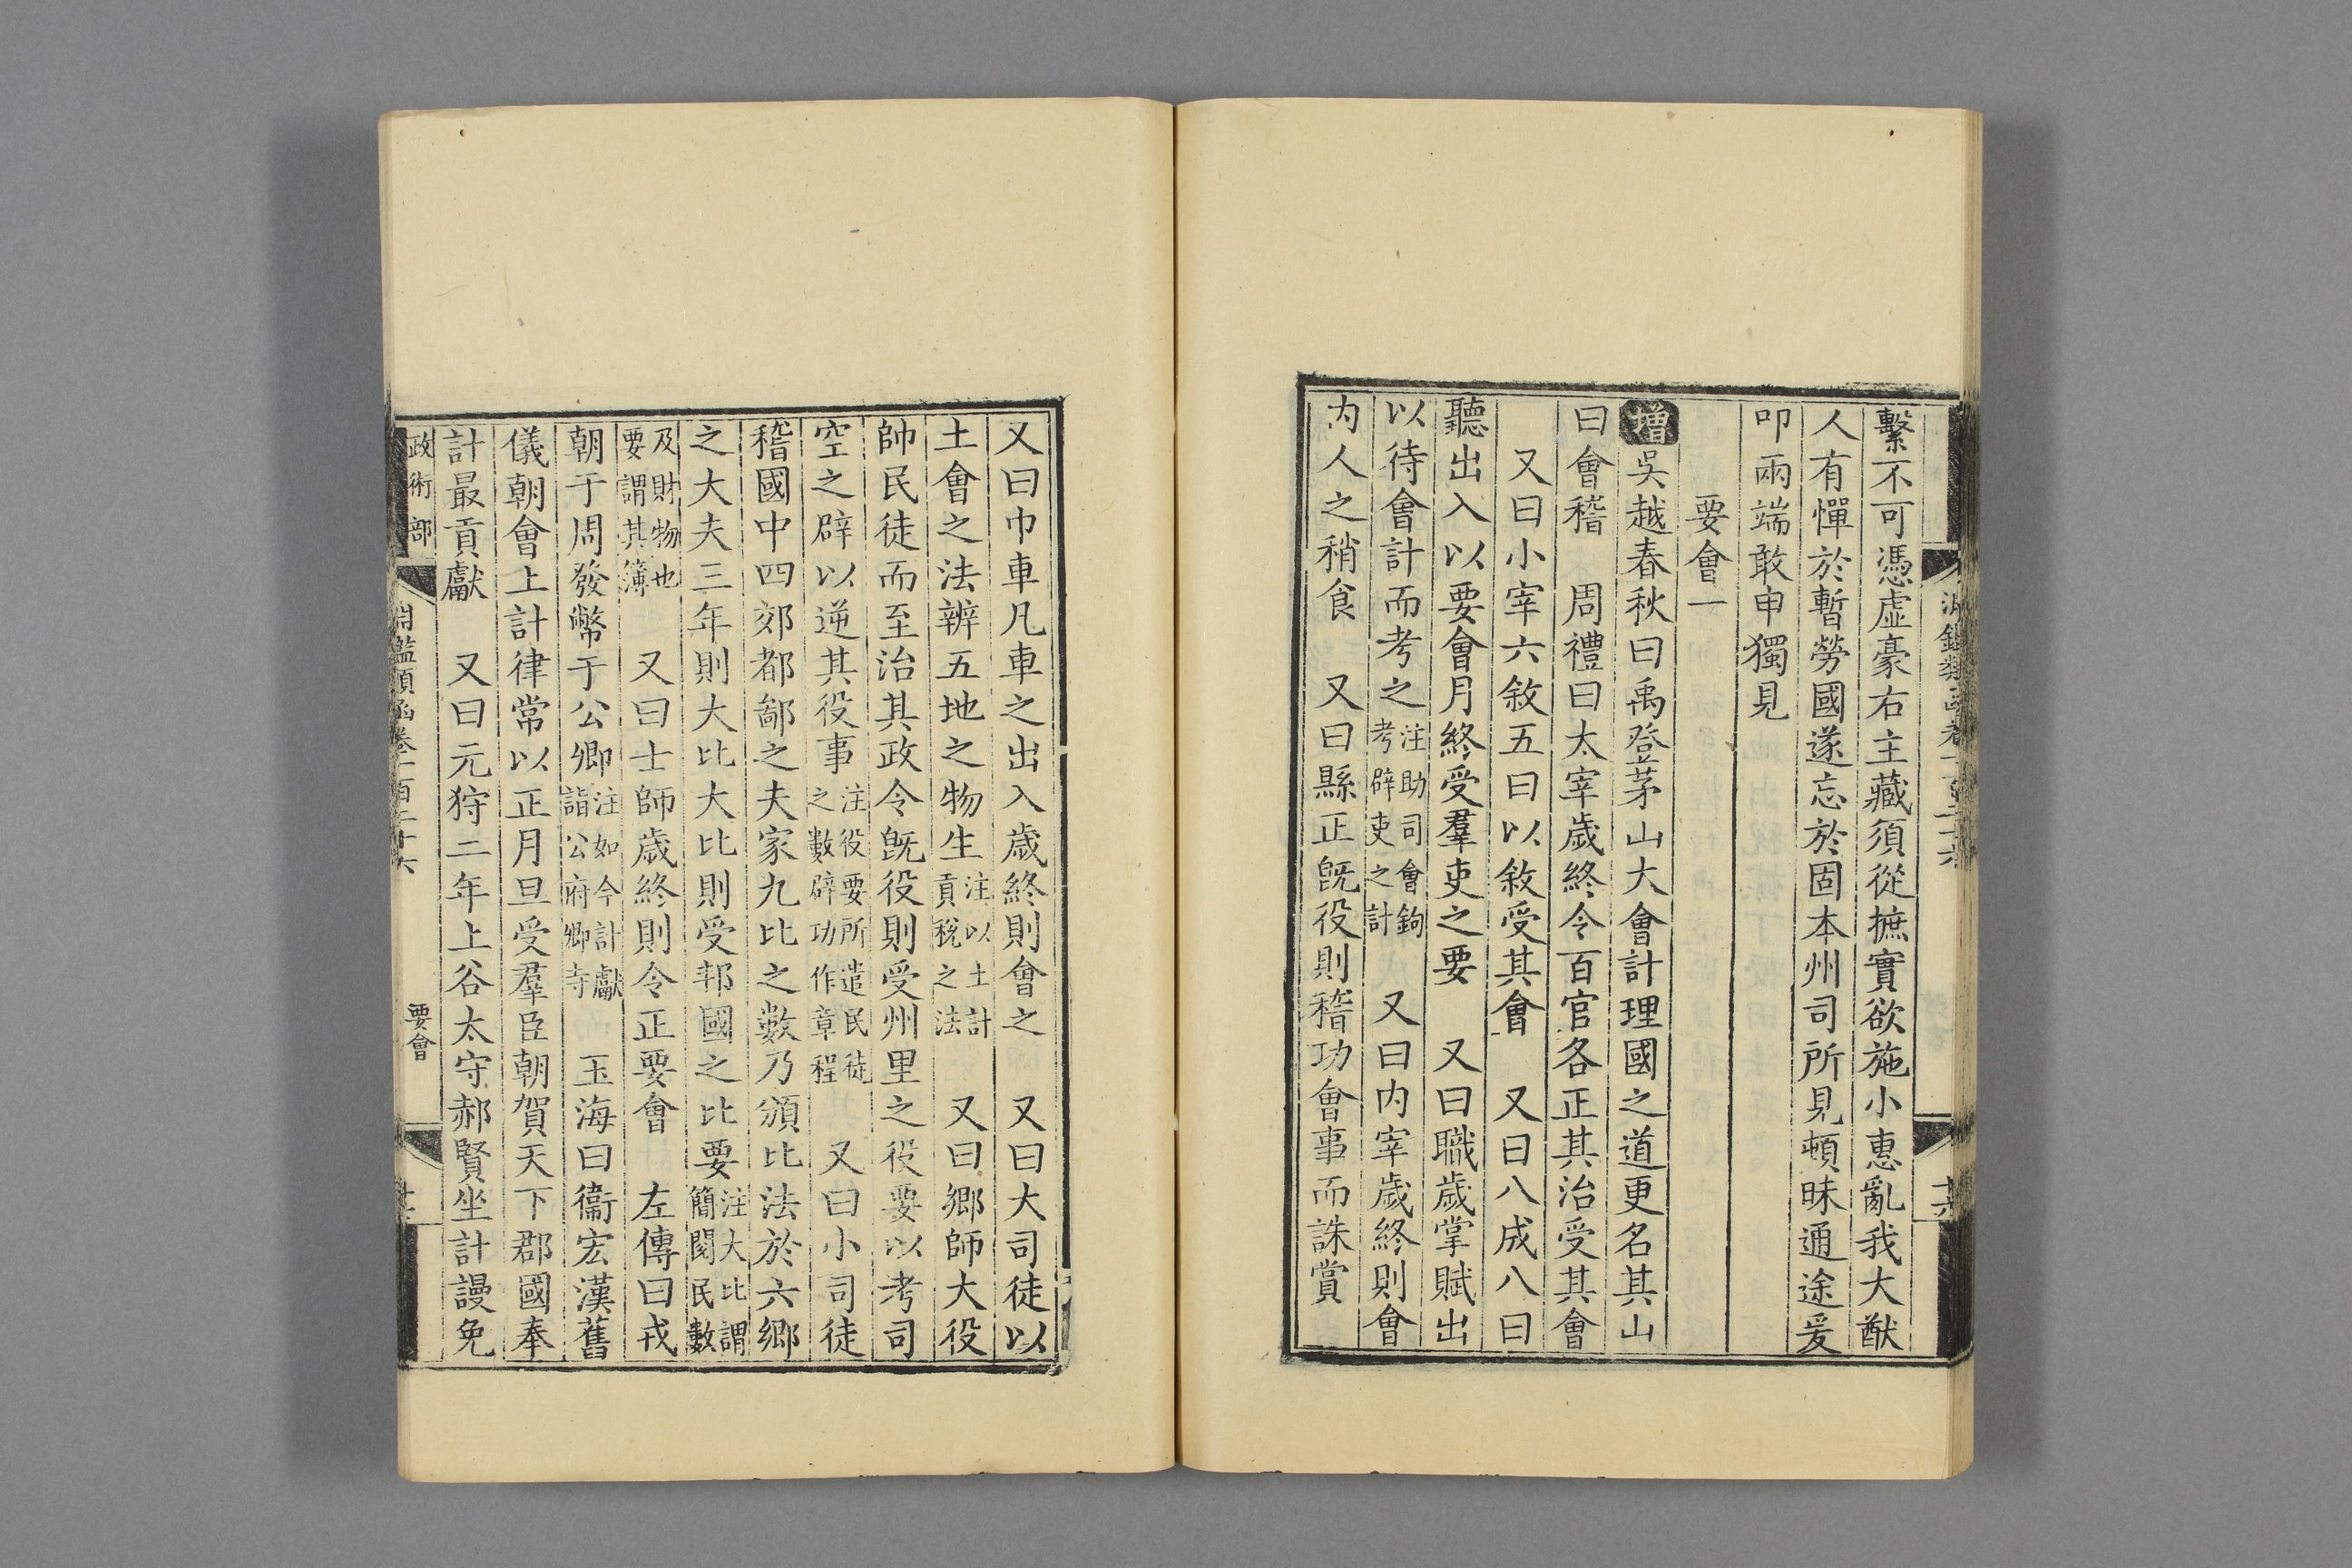 繫不可憑虛豪右主藏須從摭實欲施小惠亂我大猷
人有憚於暫勞國遂忘於固本州司所見頓昧通途爰
叩兩端敢申獨見
要會一
增吳越春秋曰禹登茅山大會計理國之道更名其山
曰會稽 周禮曰太宰歲終令百官各正其治受其會
又曰小宰六敘五曰以敘受其會 又曰八成八曰
聽出入以要會月終受羣吏之要 又曰職歲掌賦出
以待會計而考之注助司會鉤考辟吏之計 又曰內宰歲終則會
內人之稍食 又曰縣正旣役則稽功會事而誅賞
又曰巾車凡車之出入歲終則會之 又曰大司徒以
土會之法辨五地之物生注以土計貢稅之法 又曰鄉師大役
帥民徒而至治其政令旣役則受州里之役要以考司
空之辟以逆其役事注役要所遣民徒之數辟功作章程 又曰小司徒
稽國中四郊都鄙之夫家九比之數乃頒比法於六鄉
之大夫三年則大比大比則受邦國之比要注大比謂簡閱民數
及財物也要謂其簿 又曰士師歲終則令正要會 左傳曰戎
朝于周發幣于公卿注如今計獻詣公府卿寺 玉海曰衞宏漢舊
儀朝會上計律常以正月旦受羣臣朝賀天下郡國奉
計最貢獻 又曰元狩二年上谷太守郝賢坐計謾免
政術部
淵鑑類函卷一百三十六
要會